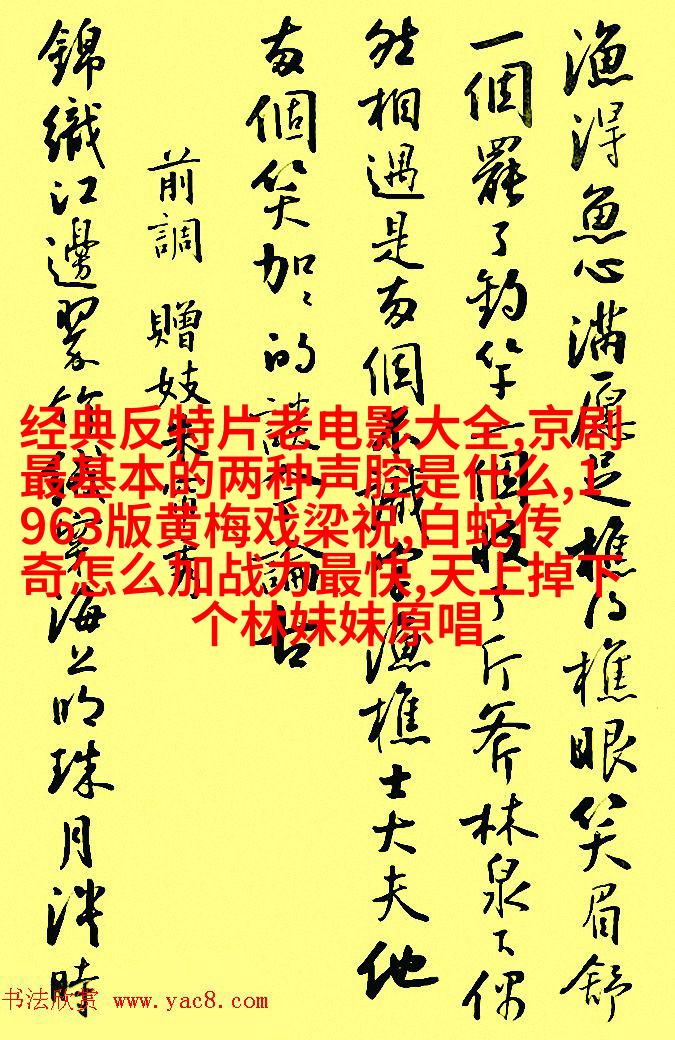 漁得魚心滿愿足樵得樵眼笑眉舒
一個罷了釣竿一個收了斤斧林泉下偶
然相遇是兩個不識字漁樵士大夫他
兩個笑加加的談今論古
前調 贈妓朱簾秀
錦織江邊翠竹絨穿海上明珠月淡時
经典反特片老电影大全,京剧
最基本的两种声腔是什么,1
963版黄梅戏梁祝,白蛇传
奇怎么加战力最快,天上掉下
个林妹妹原唱
书法欣赏 www.yac8.com